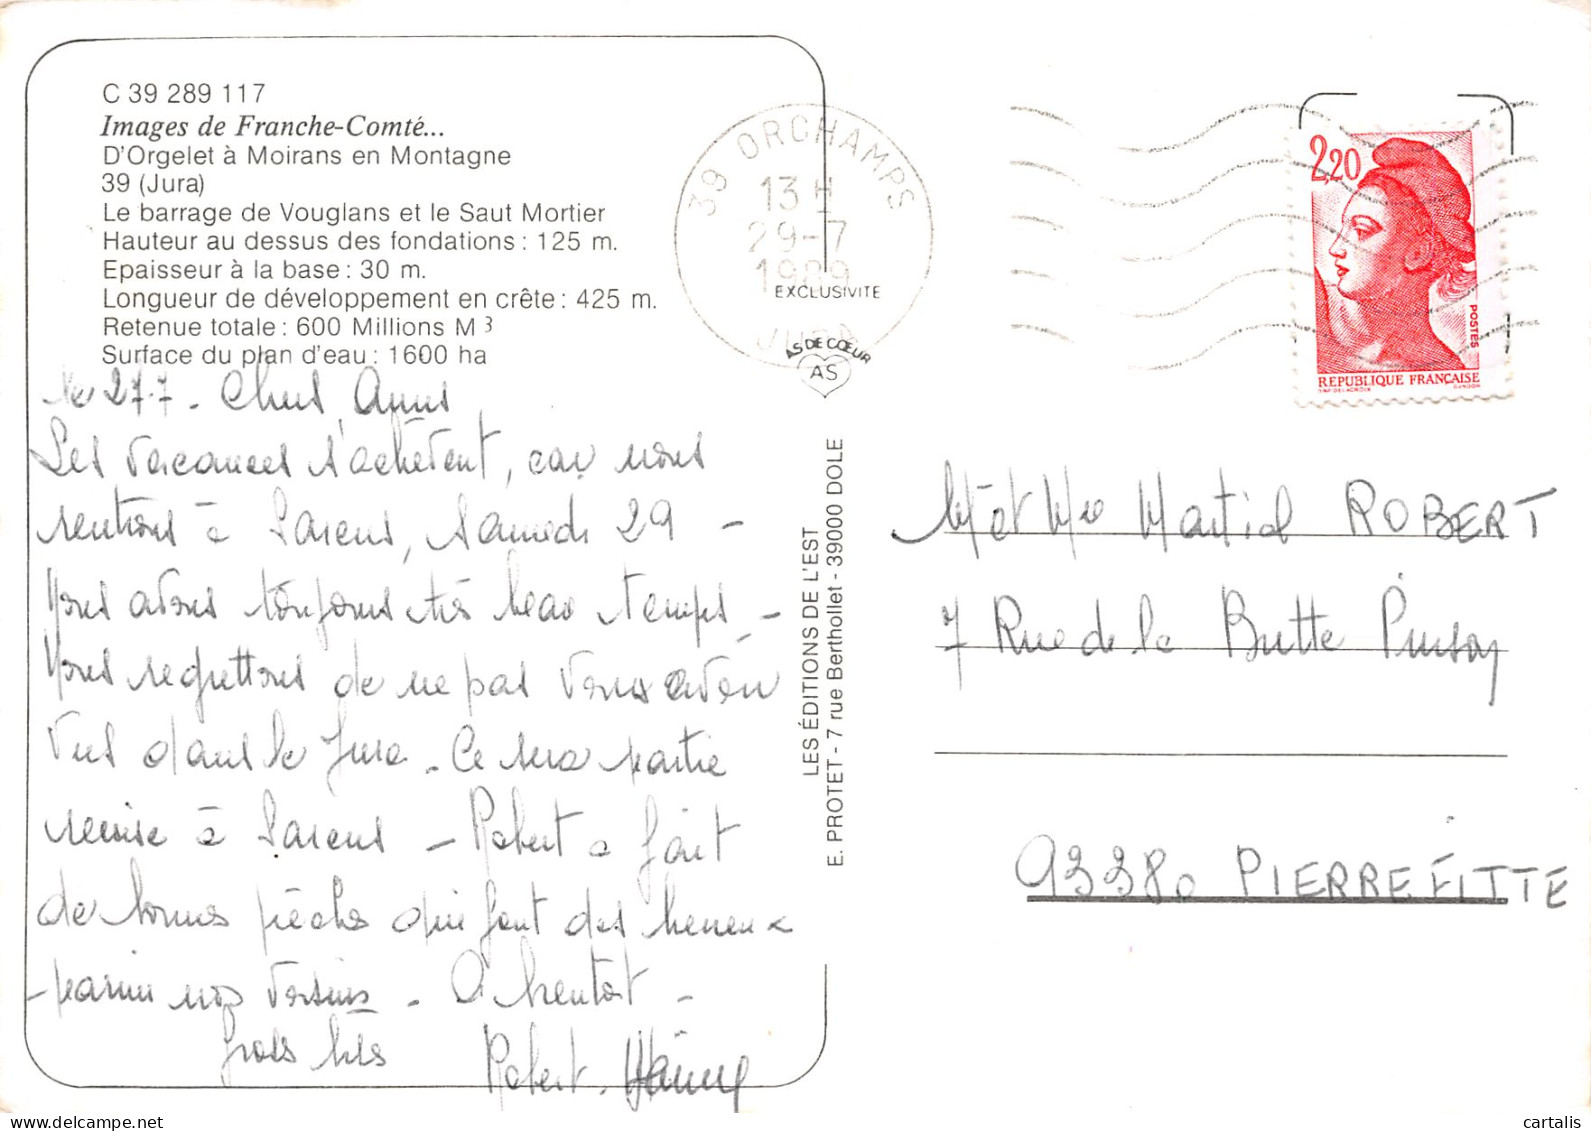 C 39 289 117
Images de Franche-Comté...
D'Orgelet à Moirans en Montagne
39 (Jura)
Le barrage de Vouglans et le Saut Mortier
Hauteur au dessus des fondations : 125 m.
Epaisseur à la base : 30 m.
Longueur de développement en crête : 425 m.
Retenue totale : 600 Millions M3
Surface du plan d'eau : 1600 ha
Le 27.7 - Chers Amis
Les vacances s'achèvent, car nous
rentrons à, Samedi 29 -
Nous avons toujours très beau temps -
Nous regrettons de ne pas vous avoir
vus dans le Jura. Ce sera partie
remise à - Robert a fait
de bonnes pêches qui font des heureux
parmi nos voisins - A bientôt -
Gros bis
Robert.
39 ORCHAMPS
13 H
29-7
1989
JURA
EXCLUSIVITE
AS DE CŒUR
AS
LES ÉDITIONS DE L'EST
E. PROTET - 7 rue Berthollet - 39000 DOLE
2,20
POSTES
REPUBLIQUE FRANÇAISE
M et Me Martial ROBERT
7 Rue de la Butte Pinson
93380 PIERREFITTE
cartalis